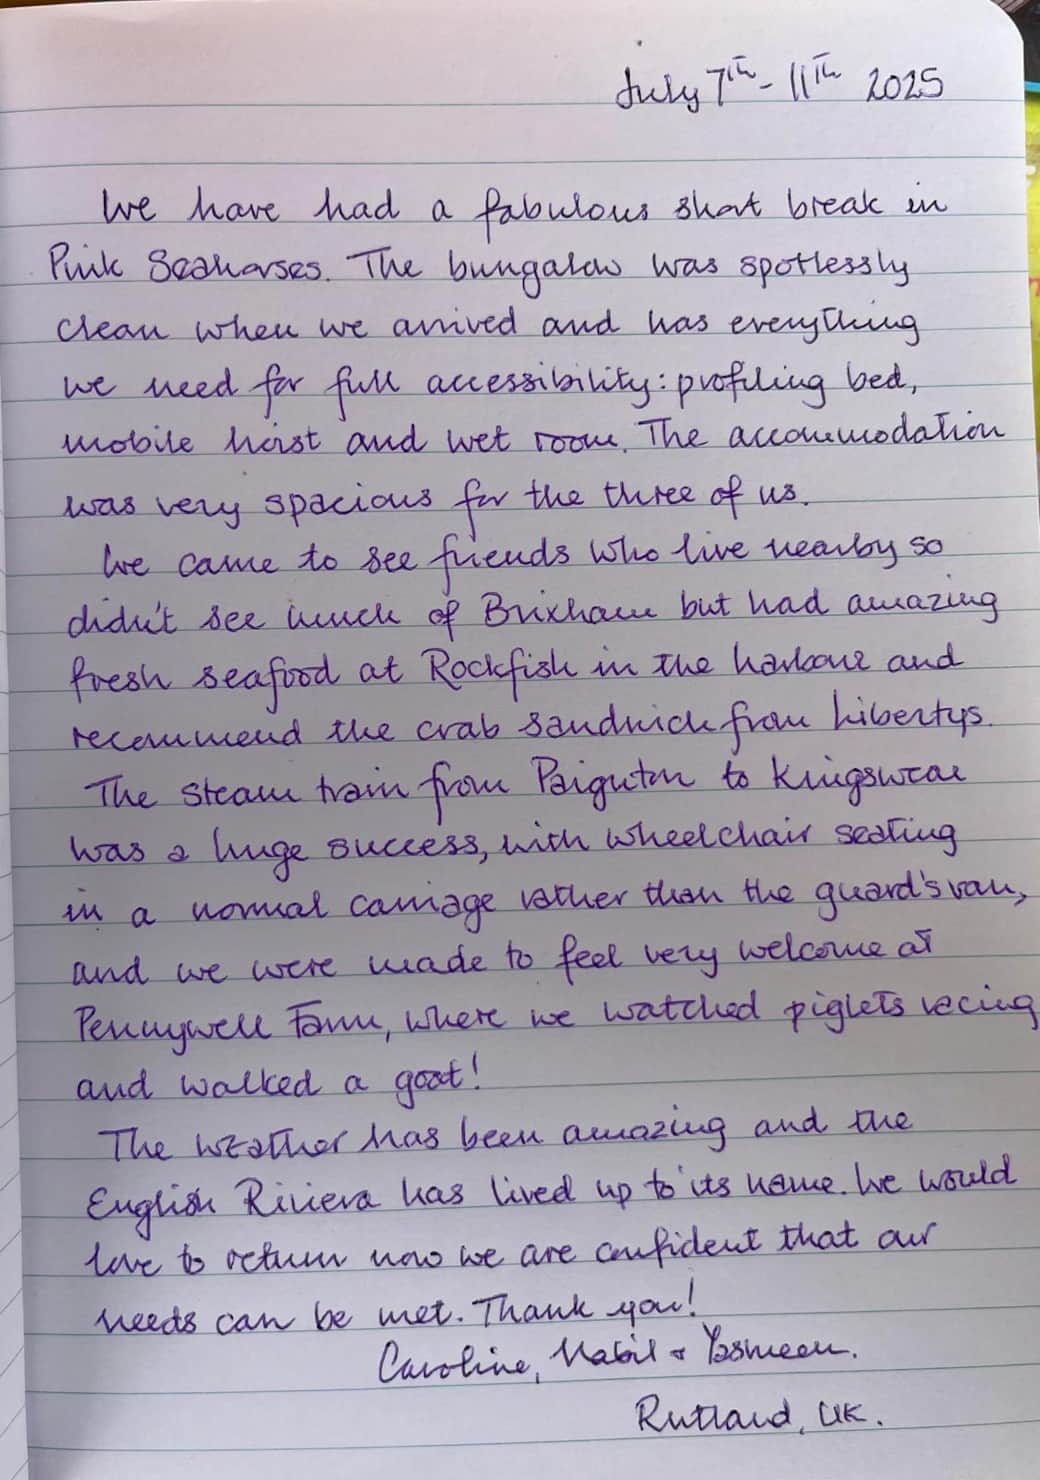 July 7th - 11th 2025
We have had a fabulous short break in
Pink Seahorses. The bungalow was spotlessly
clean when we arrived and has everything
we need for full accessibility: profiling bed,
mobile hoist and wet room. The accommodation
was very spacious for the three of us.
We came to see friends who live nearby so
didn't see much of Brixham but had amazing
fresh seafood at Rockfish in the harbour and
recommend the crab sandwich from Libertys.
The steam train from Paignton to Kingswear
was a huge success, with wheelchair seating
in a normal carriage rather than the guard's van,
and we were made to feel very welcome at
Pennywell Farm, where we watched piglets racing
and walked a goat!
The weather has been amazing and the
English Riviera has lived up to its name. We would
love to return now we are confident that our
needs can be met. Thank you!
Caroline, Nabil & Yasmeen.
Rutland, UK.